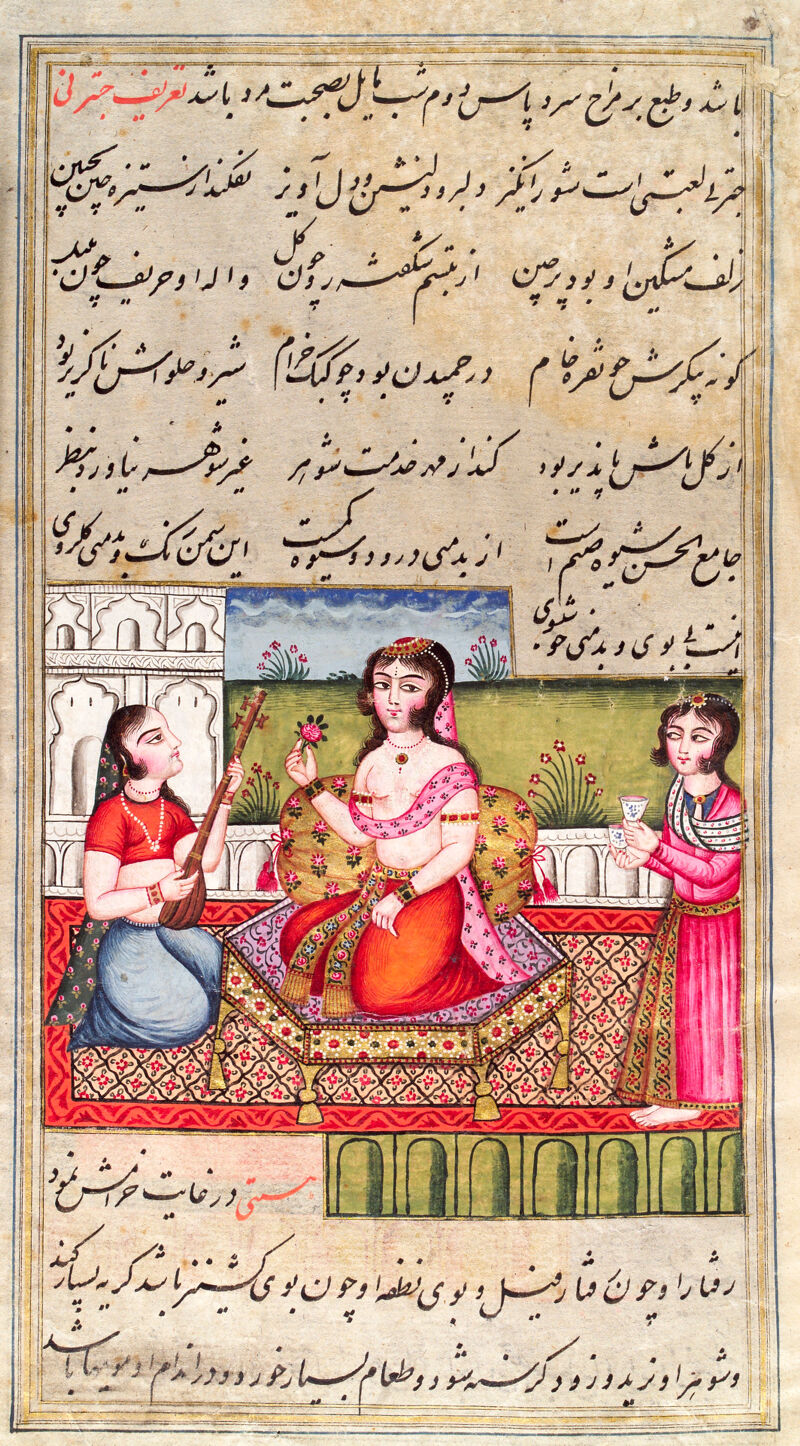 باشد و طبع بر مزاح سرد پاس دوم شب مایل بصحبت مرد باشد تعریف چترنی
چترنی لعبتی است شور انگیز دلبر و دلنشین و دل آویز نفکند از ستیزه چین بجبین
زلف مشکین او بود پرچین از تبسم شگفته رو چون گل واله او حریف چون بلبل
گونه پیکرش چو نقره خام در چمیدن بود چو کبک خرام شیر و حلواش ناگزیر بود
از کل ماش پذیر بود کند از مهر خدمت شوهر غیر شوهر نیاورد بنظر
جامع الحسن شیوه صنم است از بدمنی درو دو شیوه کمست این سمن رنگ و بدمنی گلروی
اینست بی بوی و بدمنی خوشبوی
هستنی در غایت خرامش نمود
رفتار او چون رفتار فیل و بوی نطفه او چون بوی گشنیز باشد گریه بسیار کند
و شوهر او نزید و زود گرسنه شود و طعام بسیار خورد و در اندام او مویها باشد